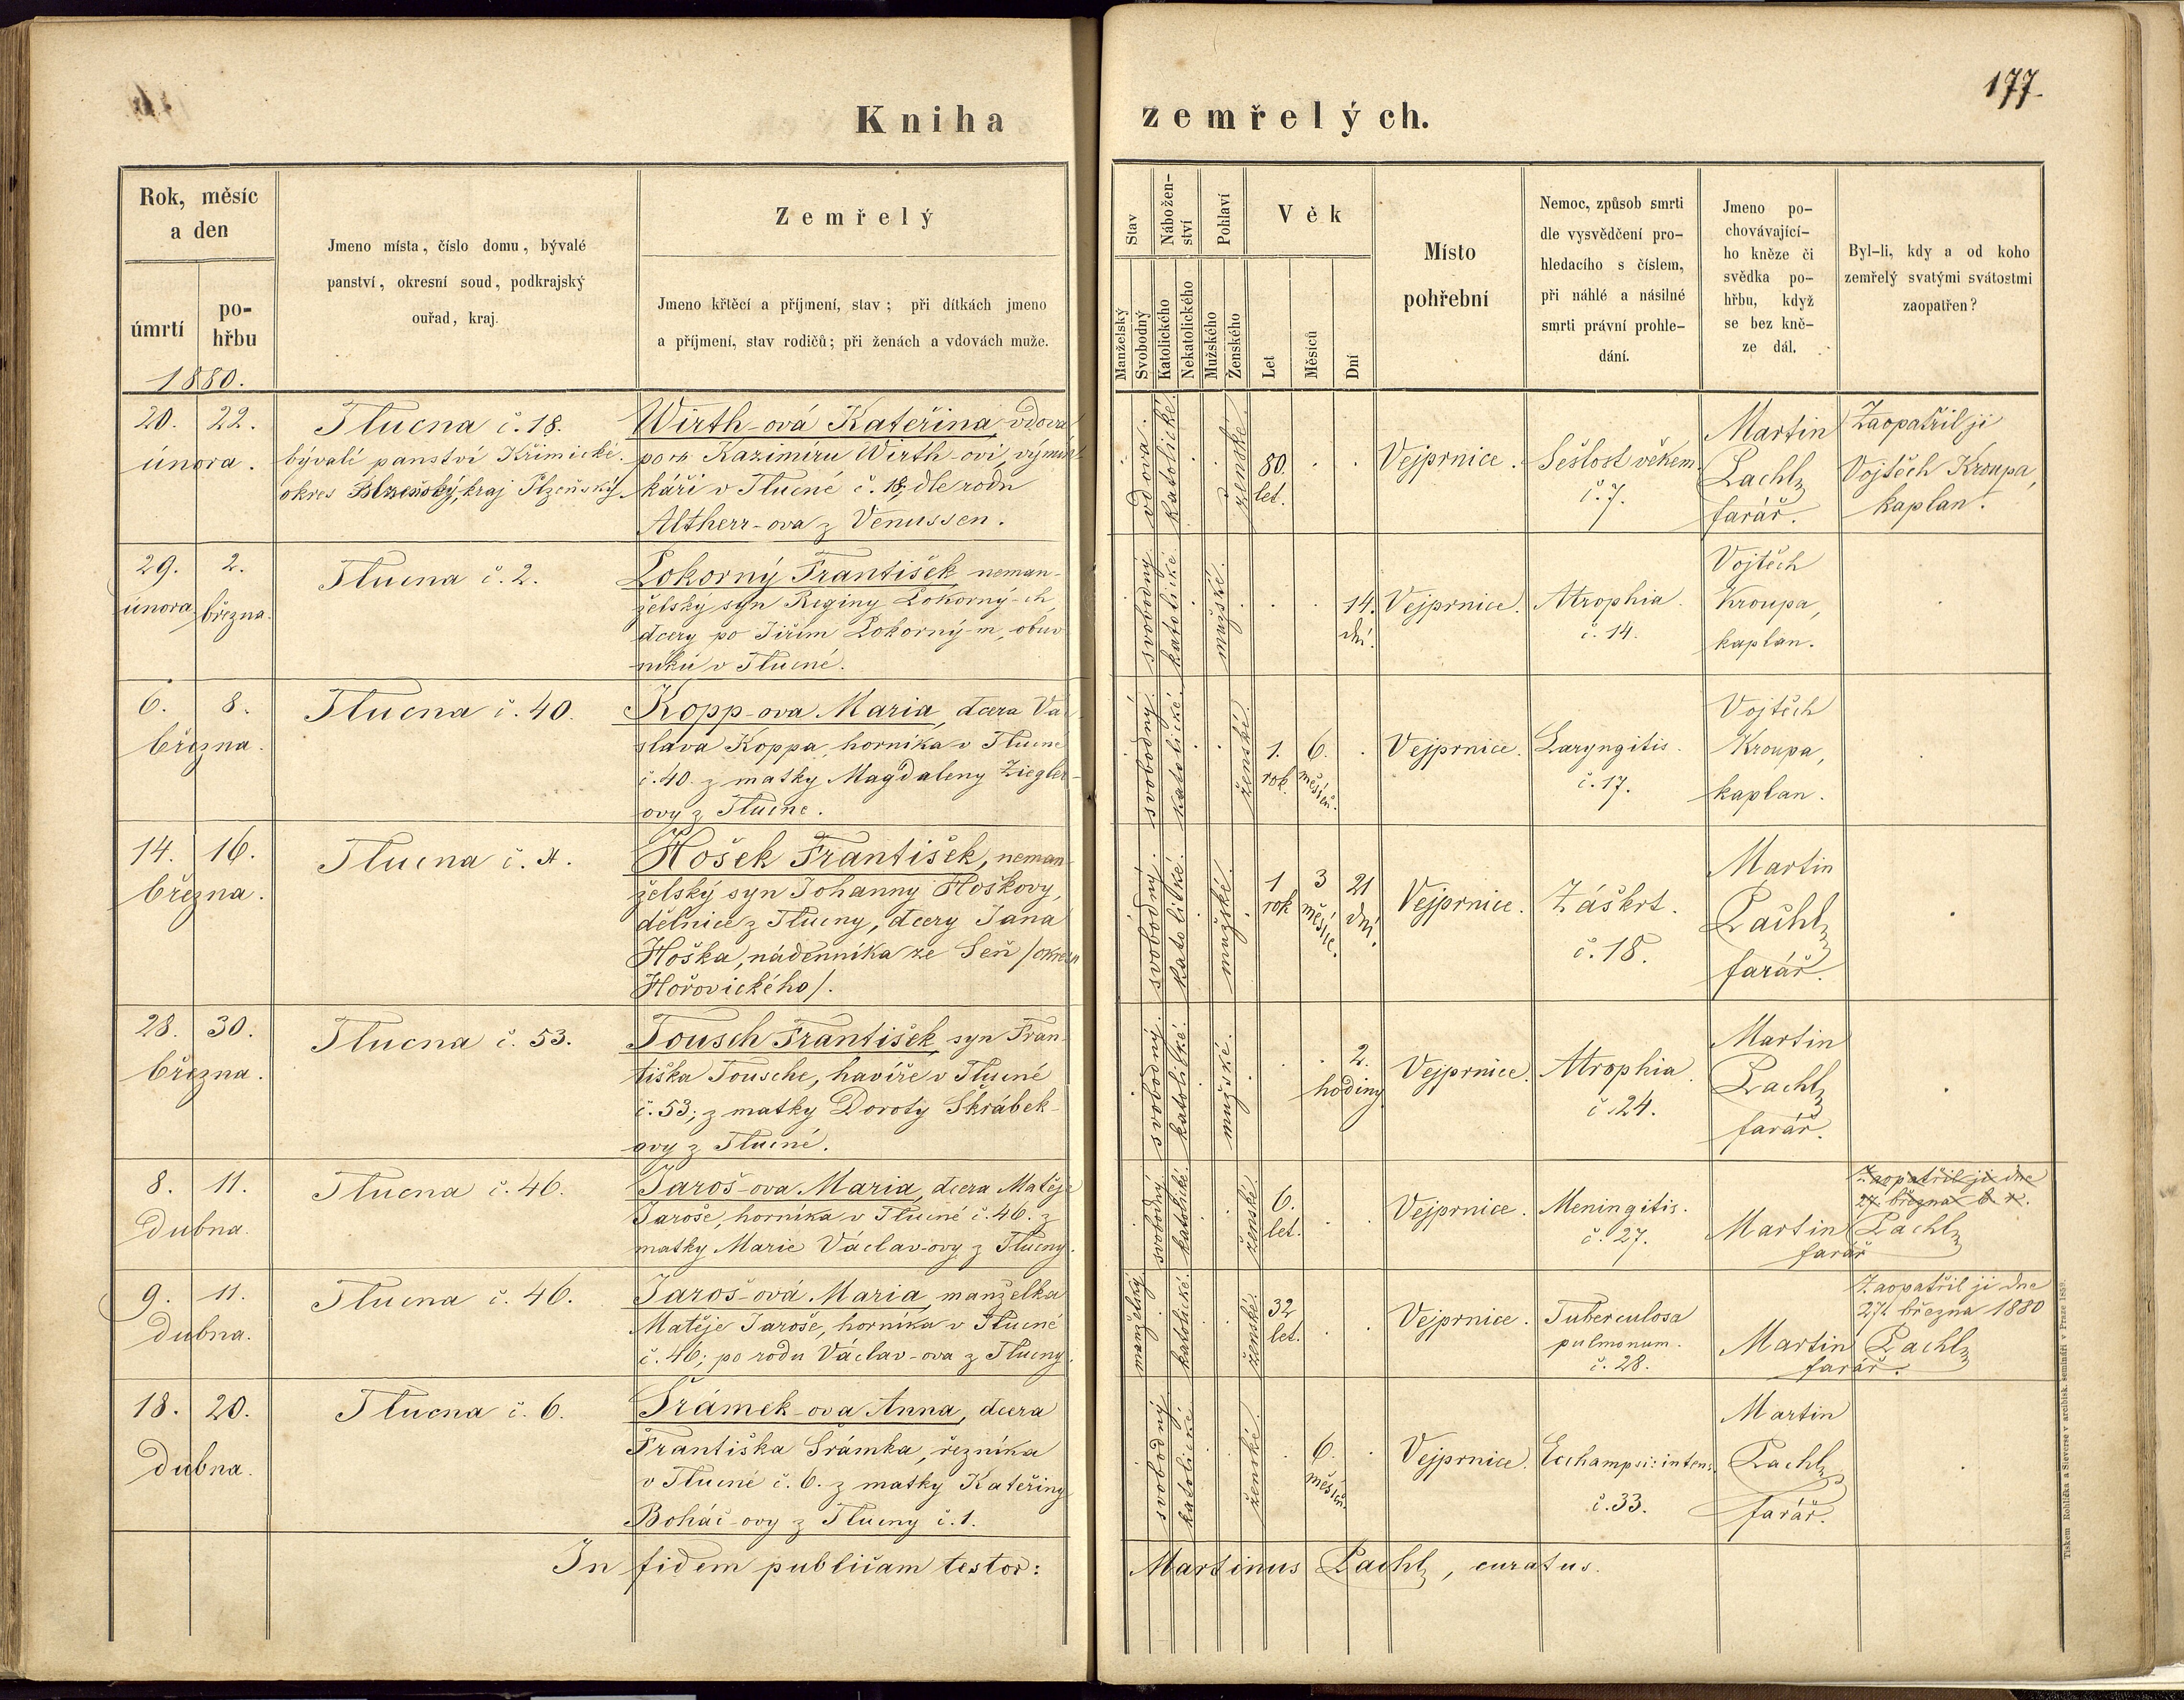 177.
Kniha zemřelých.
Rok, měsíc
a den
úmrtí
po-
hřbu
1880.
Jmeno místa, číslo domu, bývalé
panství, okresní soud, podkrajský
ouřad, kraj.
Zemřelý
Jmeno křtěcí a příjmení, stav; při dítkách jmeno
a příjmení, stav rodičů; při ženách a vdovách muže.
Stav
Manželský
Svobodný
Nábožen-
ství
Katolického
Nekatolického
Pohlaví
Mužského
Ženského
Věk
Let
Měsíců
Dní
Místo
pohřební
Nemoc, způsob smrti
dle vysvědčení pro-
hledacího s číslem,
při náhlé a násilné
smrti právní prohle-
dání.
Jmeno po-
chovávající-
ho kněze či
svědka po-
hřbu, když
se bez kně-
ze dál.
Byl-li, kdy a od koho
zemřelý svatými svátostmi
zaopatřen?
20. 22.
února.
Tlucna č. 18.
bývalé panství Křimické.
okres Plzeňský, kraj Plzeňský
Wirth-ová Kateřina vdova
po Kazimíru Wirth-ovi, výmin-
káři v Tlucné č. 18, dle rodu
Altherr-ova z Venussen.
vdova.
katolické.
ženské.
80.
let.
Vejprnice.
Sešlost věkem
č. 7.
Martin
Pachl,
farář.
Zaopatřil ji
Vojtěch Kroupa,
kaplan.
29. 2.
února března.
Tlucna č. 2.
Pokorný František neman-
želský syn Reginy Pokorný-ch,
dcery po Jiřím Pokorný-m, obuv-
níku v Tlucné.
svobodný.
katolické.
mužské.
14.
dní.
Vejprnice.
Atrophia.
č. 14.
Vojtěch
Kroupa,
kaplan.
6. 8.
března.
Tlucna č. 40.
Kopp-ova Maria, dcera Vá-
slava Koppa, horníka v Tlucne
č. 40. z matky Magdaleny Ziegler-
ovy z Tlucne.
svobodný.
katolické.
ženské.
1.
rok.
6.
měsíců.
Vejprnice.
Laryngitis.
č. 17.
Vojtěch
Kroupa,
kaplan.
14. 16.
března.
Tlucna č.
Hošek František, neman-
želský syn Johanny Hoškovy,
dělnice z Tlucny, dcery Jana
Hoška, nádenníka ze Señ /okresu
Hořovického/.
svobodný.
katolické.
mužské.
1
rok
3
měsíce.
21
dní.
Vejprnice.
Záškrt.
č. 18.
Martin
Pachl,
farář.
28. 30.
března.
Tlucna č. 53.
Tousch František, syn Fran-
tiška Tousche, havíře v Tlucné
č. 53; z matky Doroty Škrábek-
ovy z Tlucné.
svobodný.
katolické.
mužské.
2.
hodiny
Vejprnice.
Atrophia.
č. 24.
Martin
Pachl,
farář.
8. 11.
dubna.
Tlucna č. 46.
Jaroš-ova Maria, dcera Matěje
Jaroše, horníka v Tlucné č. 46. z
matky Marie Václav-ovy z Tlucny.
svobodný
katolické.
ženské.
6.
let.
Vejprnice.
Meningitis.
č. 27.
Zaopatřil ji dne
27. března t. r.
Martin Pachl,
farář
9. 11.
dubna.
Tlucna č. 46.
Jaroš-ová Maria, manželka
Matěje Jaroše, horníka v Tlucné
č. 46; po rodu Václav-ova z Tlucny.
manželský.
katolické.
ženské.
32
let.
Vejprnice.
Tuberculosa
pulmonum.
č. 28.
Zaopatřil ji dne
27. března 1880
Martin Pachl,
farář.
18. 20.
dubna.
Tlucna č. 6.
Šrámek-ova Anna, dcera
Františka Šrámka, řezníka
v Tlucné č. 6. z matky Kateřiny
Boháč-ovy z Tlucny č. 1.
svobodný
katolické
ženské.
6.
měsíců.
Vejprnice.
č. 33.
Martin
Pachl,
farář.
In fidem publicam testor: Martinus Pachl, curatus.
Tiskem Rohlíčka a Sieverse v arcibisk. semináři v Praze 1859.